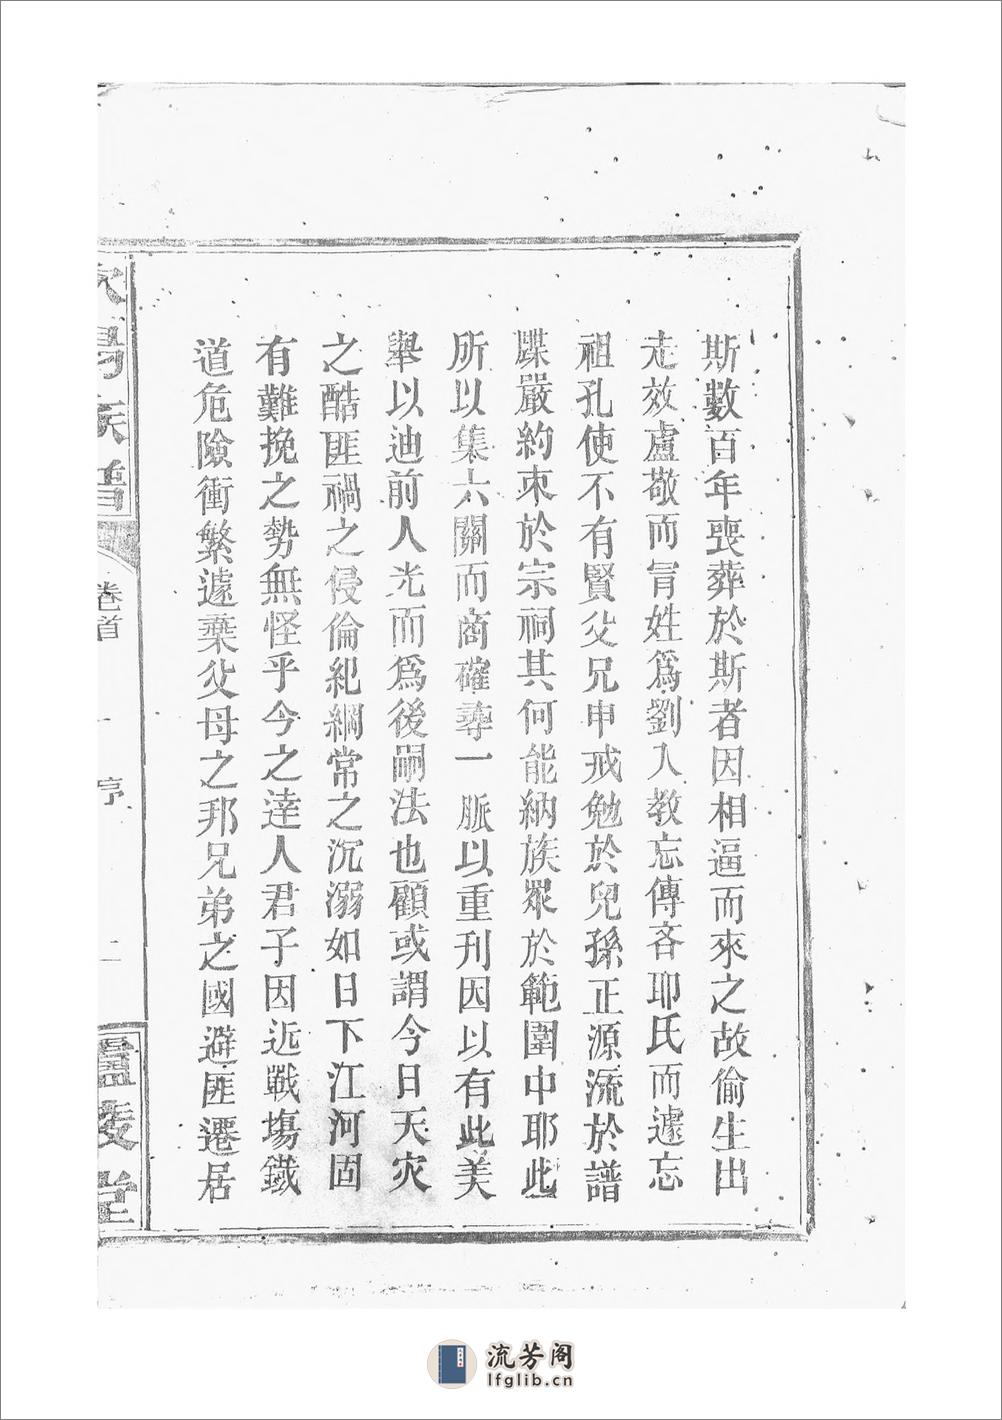 斯數百年喪葬於斯者因相逼而來之故偷生出
走效盧敬而冐姓爲劉入教忘傳吝耶氏而遽忘
祖孔使不有賢父兄申戒勉於兒孫正源流於譜
牒嚴約朿於宗祠其何能納族眾於範圍中耶此
所以集六關而商確尋一脈以重刊因以有此美
舉以迪前人光而爲後嗣法也顧或謂今日天灾
之酷匪禍之侵倫紀綱常之沉溺如日下江河固
有難挽之勢無怪乎今之達人君子因近戰塲鐵
道危險衝繁遽棄父母之邦兄弟之國避匪遷居
易氏譜
卷首
序
二
堂
流芳阁
lfglib.cn